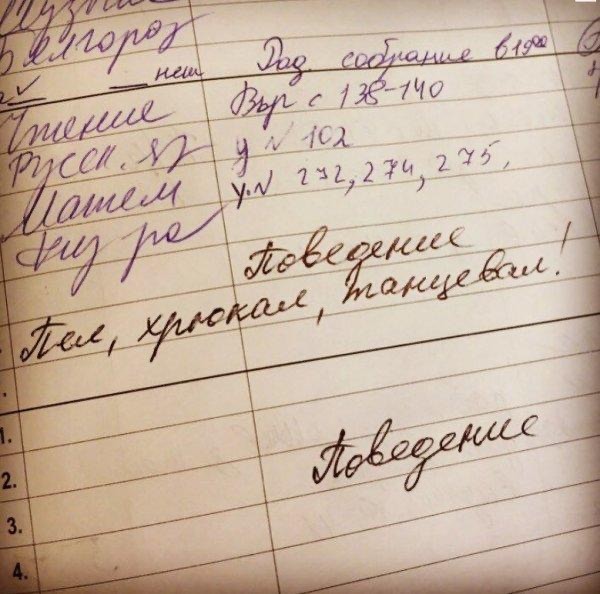 Белгород
Род собрание в 19⁰⁰
Чтение В.пр с 138-140
Русск. яз у N 102
Матем у.N 272, 274, 275.
Физ-ра
Поведение
Пел, хрюкал, танцевал!
1.
2. Поведение
3.
4.